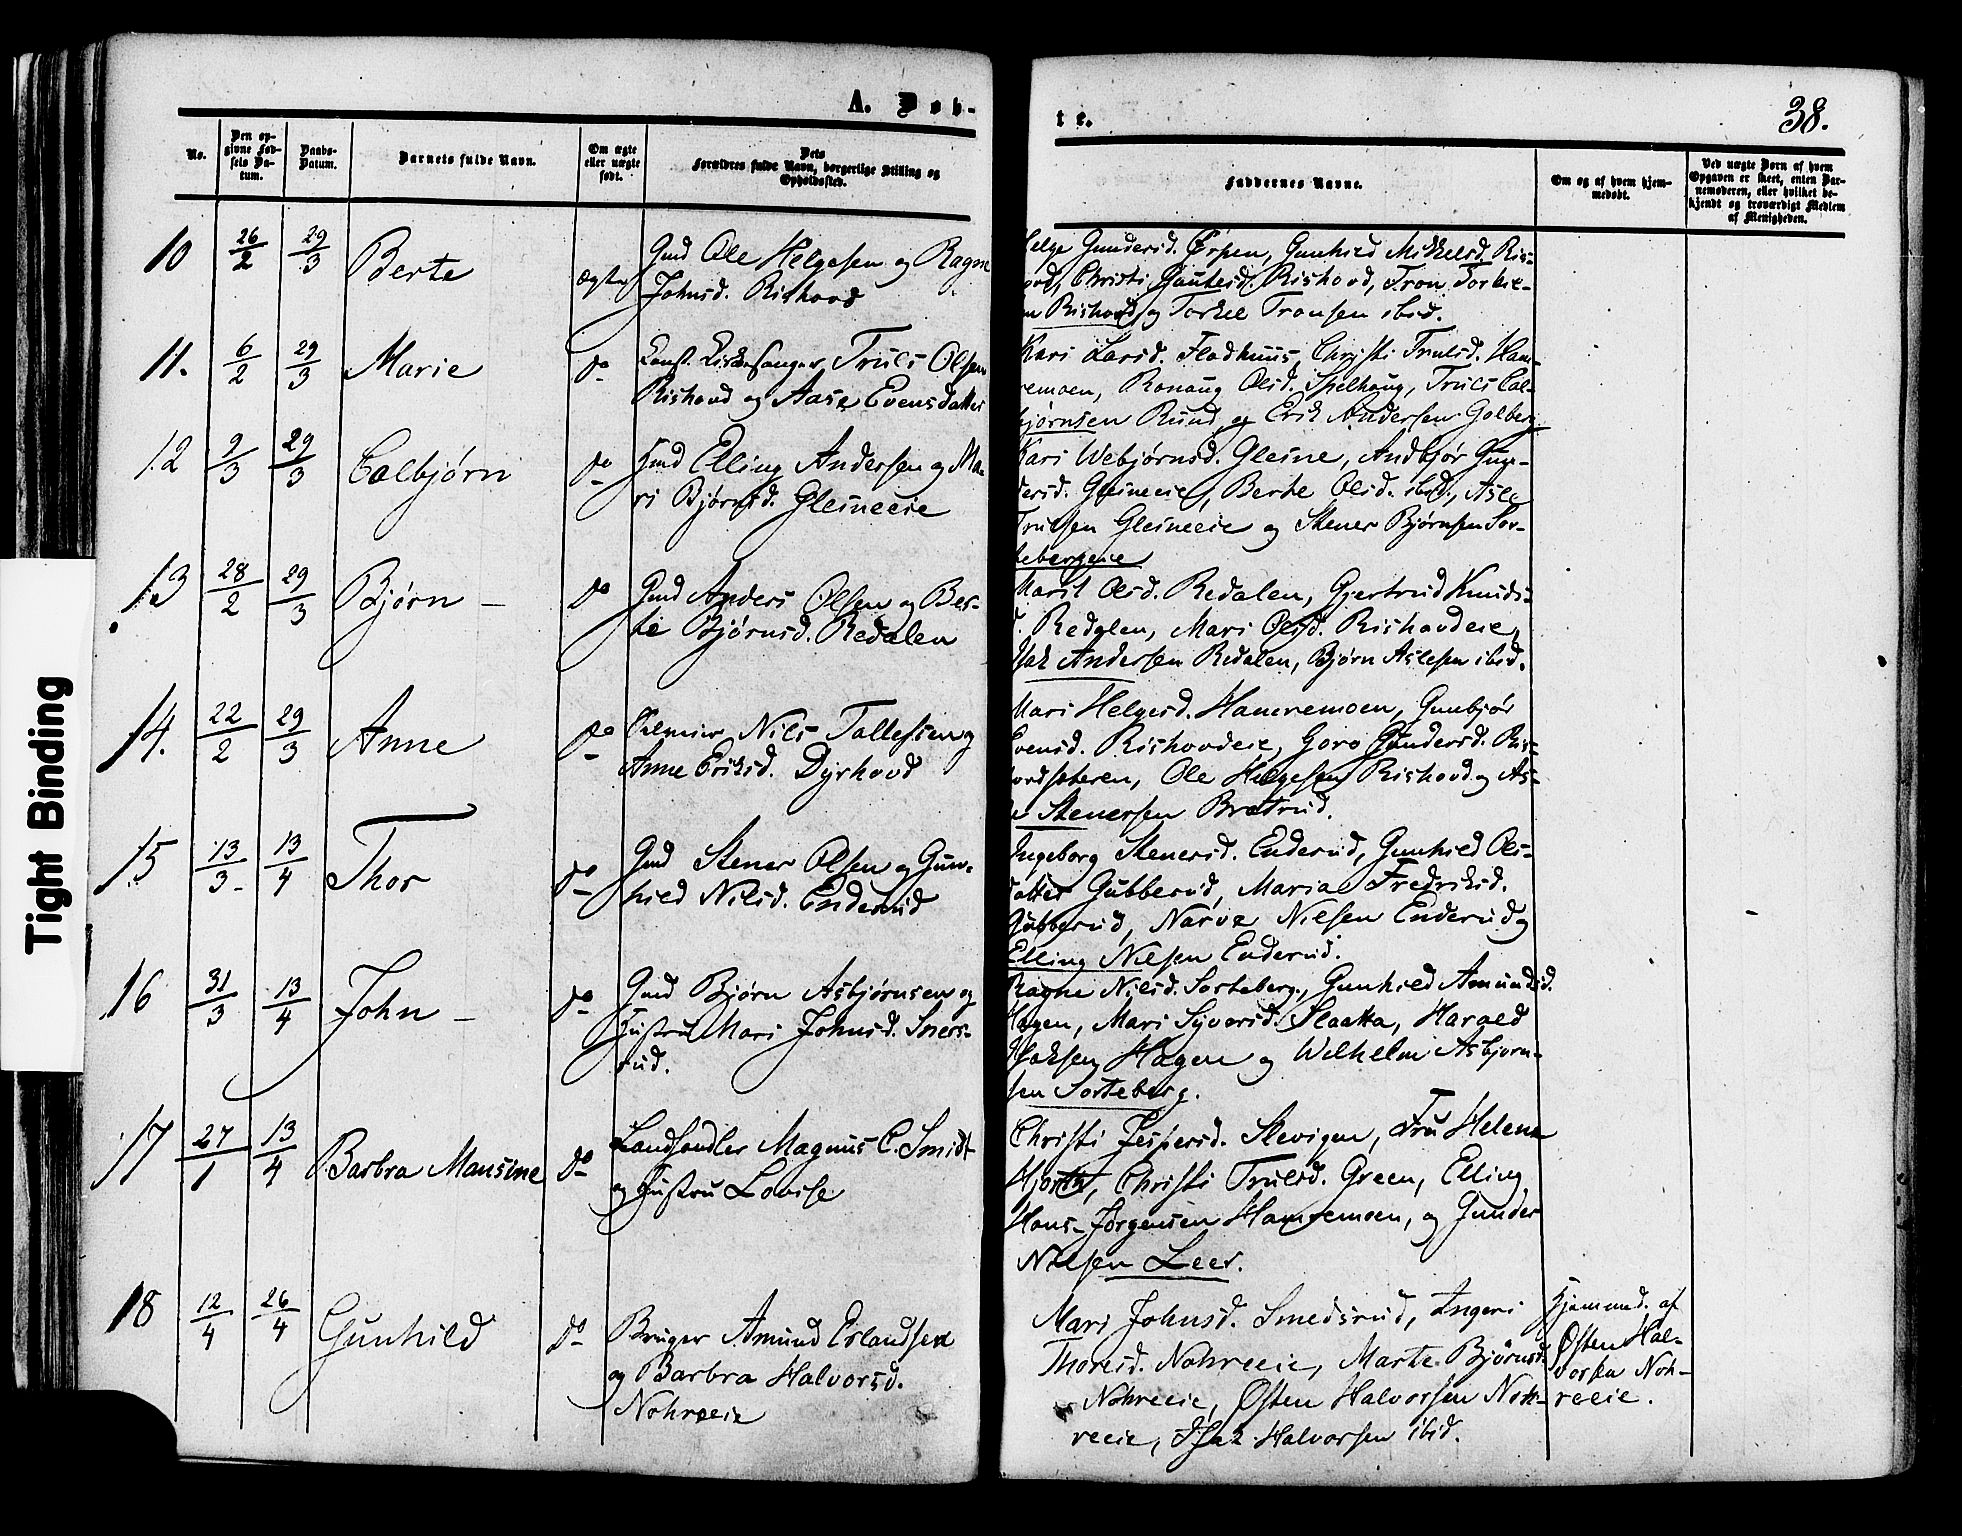 A. Døb-
te.
38.
No.
Den op-
givne Fød-
sels Da-
tum.
Daabs-
Datum.
Barnets fulde Navn.
Om ægte
eller uægte
født.
Dets
Forældres fulde Navn, borgerlige Stilling og
Opholdssted.
Faddernes Navne.
Om og af hvem hjem-
medøbt.
Ved uægte Børn af hvem
Opgaven er skeet, enten Bar-
nemoderen, eller hvilket be-
kjendt og troværdigt Medlem
af Menigheden.
10 26/2 29/3 Berte ægte
Gmd Ole Helgesen og Ragne
Johnsd. Rishovd
Helge Gundersd. Ørpen, Gunhild Mikkelsd. Ris-
hovd, Christi Gautesd. Rishovd, Tron Torkel-
Rishovd og Torkel Tronsen ibid.
11. 6/2 29/3 Marie do
Const. Kirkesanger Truls Olsen
Rishovd og Aase Evensdatter
Kari Larsd. Fladhuus, Christi Trulsd. Ham-
remoen, Ronaug Olsd. Spelhaug, Truls Col-
bjørnsen Ruud og Erik Andersen Golberg
12 9/3 29/3 Colbjørn do
Hmd Elling Andersen og Ma-
ri Bjørnsd. Glesneeie
Kari Webjørnsd. Glesne, Andbjør Gun-
dersd. Glesneeie, Berte Olsd. ibid., Asle
Trulsen Glesneeie og Stener Bjørnsen Sor-
tebergeie
13 28/2 29/3 Bjørn – do
Gmd Anders Olsen og Ber-
te Bjørnsd. Redalen
Marit Olsd. Redalen, Gjertrud Knuds-
d. Redalen, Mari Olsd. Rishovdeie,
Isak Andersen Redalen, Bjørn Aslesen ibid.
14. 22/2 29/3 Anne do
Nils Tollefsen og
Anne Eriksd. Dyrhovd
Mari Helgesd. Hamremoen, Gunbjør
Evensd. Rishovdeie, Goro Gundersd. Ris-
hovdsæteren, Ole Helgesen Rishovd og As-
le Stenersen Bratrud.
15 13/3 13/4 Thor do
Gmd Stener Olsen og Gun-
hild Nilsd. Enderud
Ingeborg Stenersd. Enderud, Gunhild Ols-
datter Gubberud, Maria Fredriksd.
Gubberud, Narve Nilsen Enderud og
Elling Nilsen Enderud.
16 31/3 13/4 John – do
Gmd Bjørn Asbjørnsen og
Hustru Mari Johnsd. Sners-
rud.
Ragne Nilsd. Sorteberg, Gunhild Amundsd.
Hagen, Mari Syversd. Slaatta, Harald
Isaksen Hagen og Wilhelm Asbjørn-
sen Sorteberg.
17 27/1 13/4 Barbra Mausine do
Landhandler Magnus C. Smidt
og Hustru Lovise
Christi Jespersd. Slevigen, Fru Helena
Hjorth, Christi Trulsd. Green, Elling
Hans-Jørgensen Hamremoen, og Gunder
Nilsen Leer.
18 12/4 26/4 Gunhild do
Bruger Amund Erlandsen
og Barbra Halvorsd.
Nohreeie
Mari Johnsd. Smedsrud, Ingeri
Thoresd. Nohreeie, Marte Bjørnsd.
Nohreeie, Østen Halvorsen Noh-
reeie, Isak Halvorsen ibid.
Hjemmed. af
Østen Hal-
vorsen Noh-
reeie.
Tight Binding